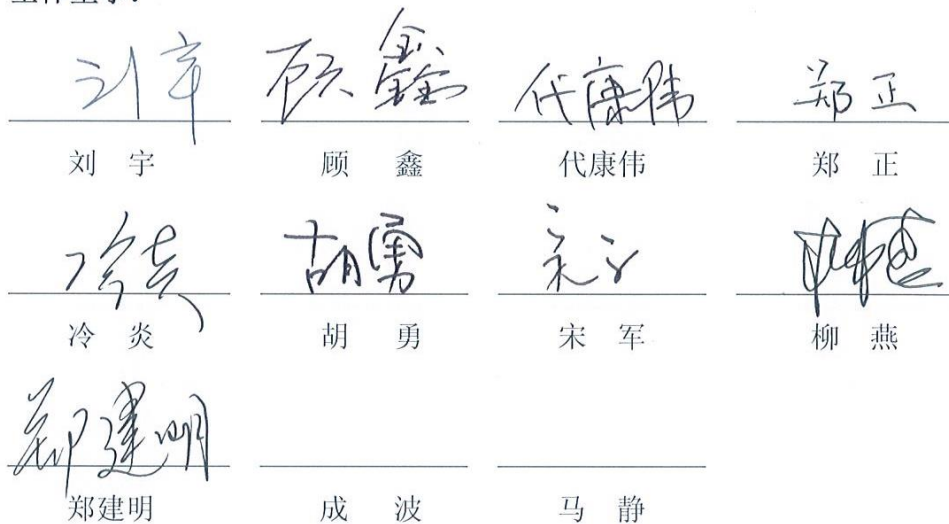 刘宇 顾鑫 代康伟 郑正
刘 宇 顾 鑫 代康伟 郑 正
冷炎 胡勇
冷 炎 胡 勇 宋 军 柳 燕
郑建明
郑建明 成 波 马 静